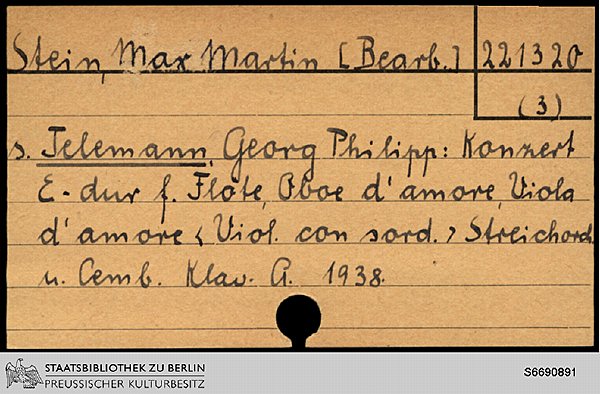 Stein, Max Martin [Bearb.] 221320
(3)
s. Telemann, Georg Philipp: Konzert
E-dur f. Flöte, Oboe d'amore, Viola
d'amore < Viol. con sord. > Streichorch.
u. Cemb. Klav. A. 1938.
STAATSBIBLIOTHEK ZU BERLIN
PREUSSISCHER KULTURBESITZ
S6690891